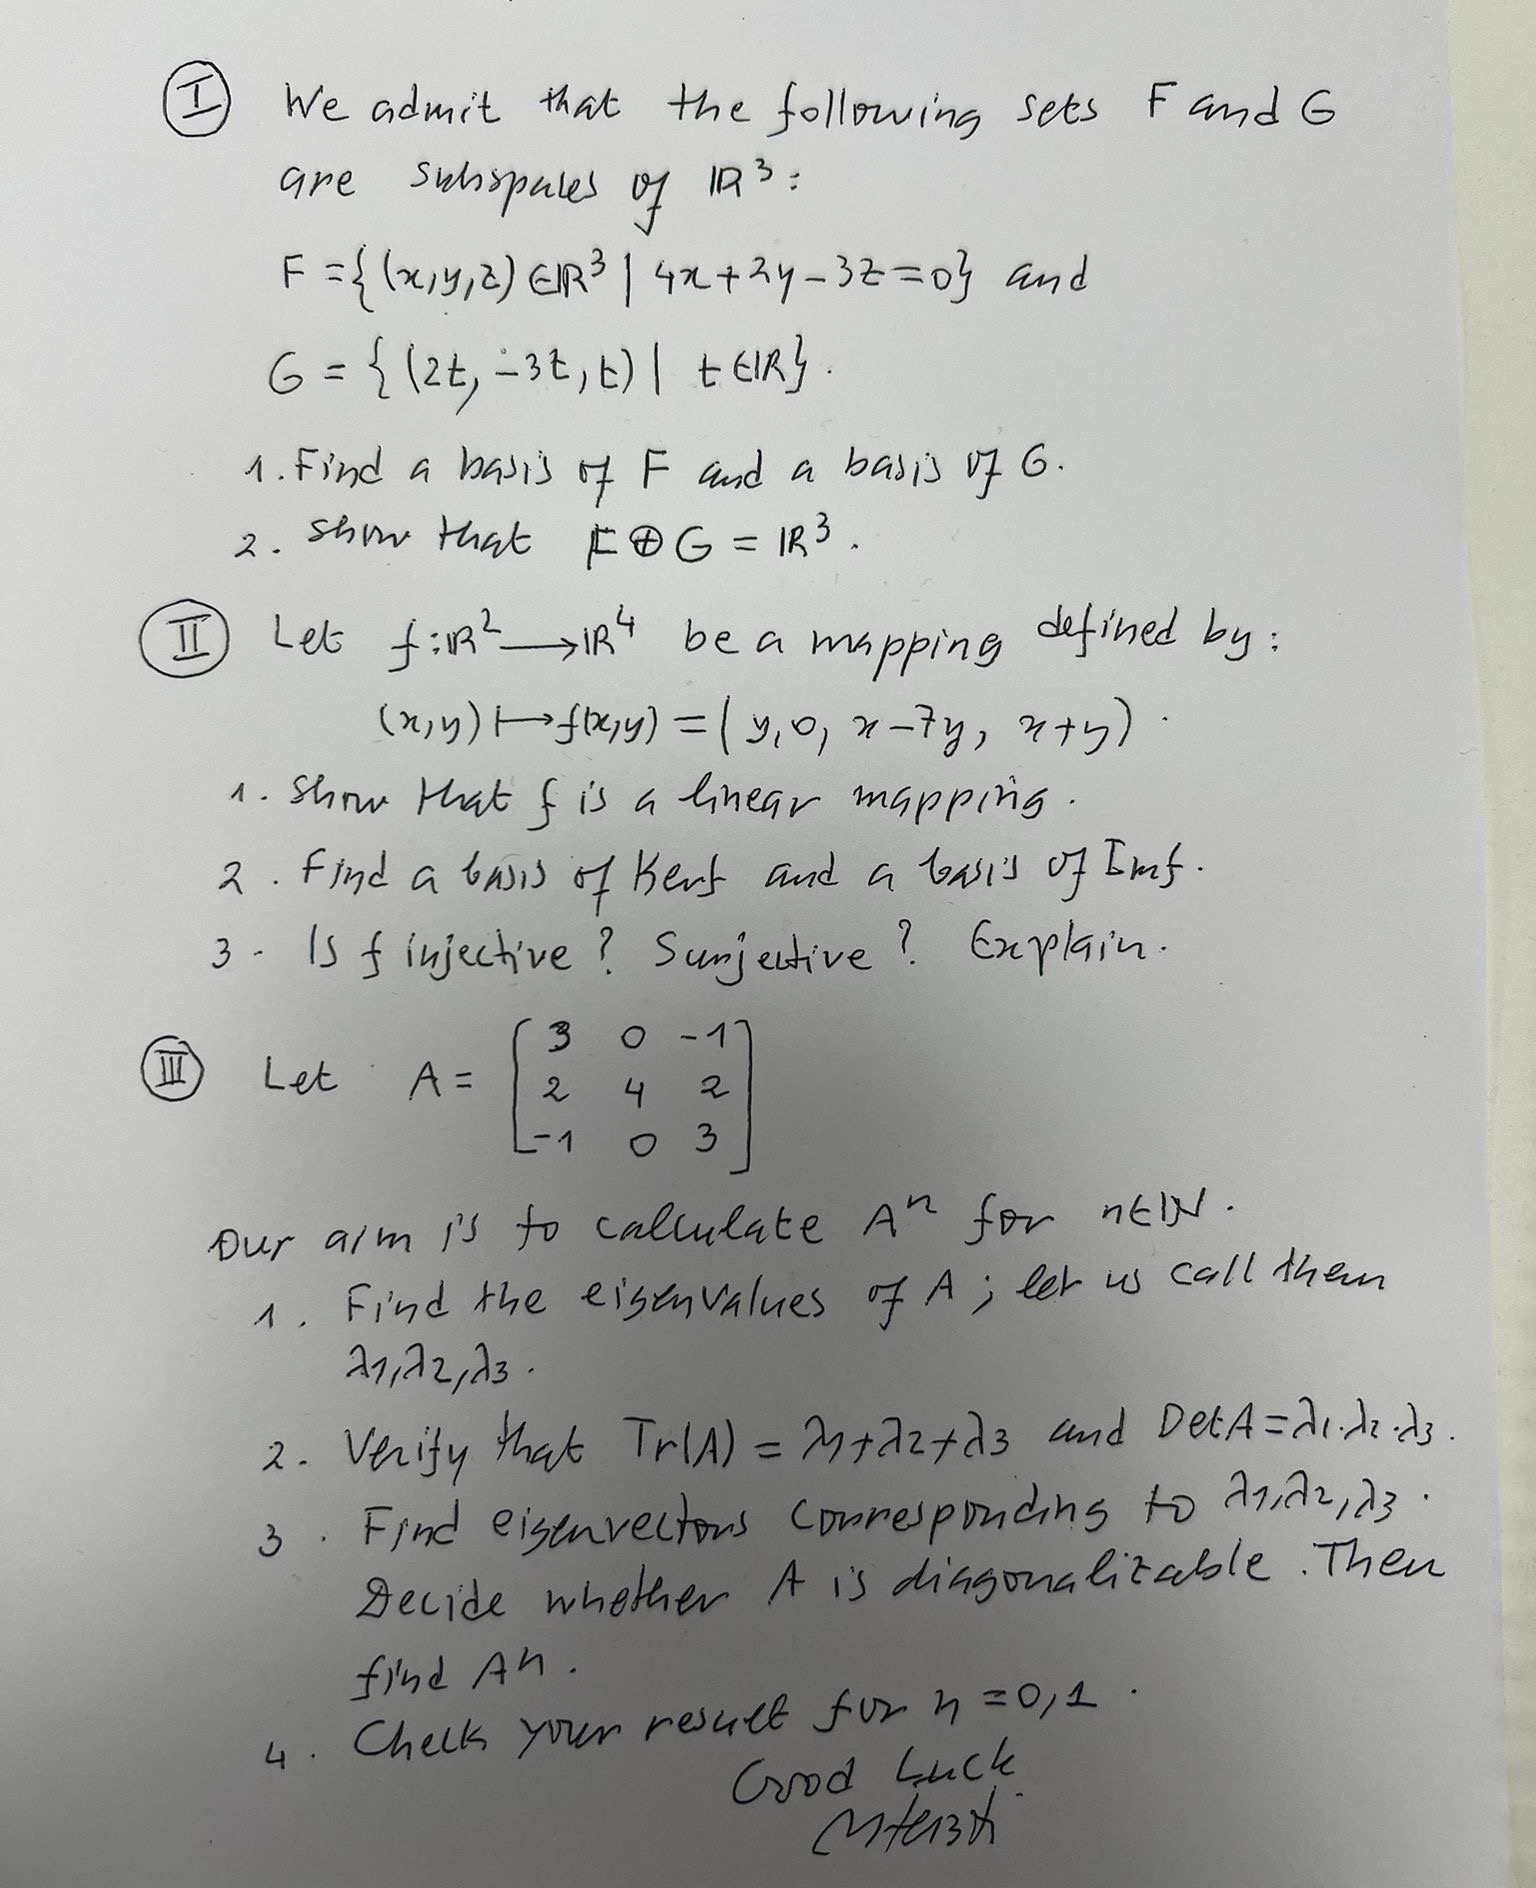 I We admit that the following sets F and G
are subspaces of ℝ³:
F = {(x,y,z) ∈ ℝ³ | 4x + 2y - 3z = 0} and
G = {(2t, -3t, t) | t ∈ ℝ}.
1. Find a basis of F and a basis of G.
2. Show that F ⊕ G = ℝ³.
II Let f: ℝ² → ℝ⁴ be a mapping defined by:
(x,y) ↦ f(x,y) = (y, 0, x-7y, x+y).
1. Show that f is a linear mapping.
2. Find a basis of Kerf and a basis of Imf.
3. Is f injective? Surjective? Explain.
III Let A = [3 0 -1
2 4 2
-1 0 3]
Our aim is to calculate Aⁿ for n ∈ ℕ.
1. Find the eigenvalues of A; let us call them
λ1, λ2, λ3.
2. Verify that Tr(A) = λ1 + λ2 + λ3 and Det A = λ1·λ2·λ3.
3. Find eigenvectors corresponding to λ1, λ2, λ3.
Decide whether A is diagonalizable. Then
find Aⁿ.
4. Check your result for n = 0, 1.
Good Luck